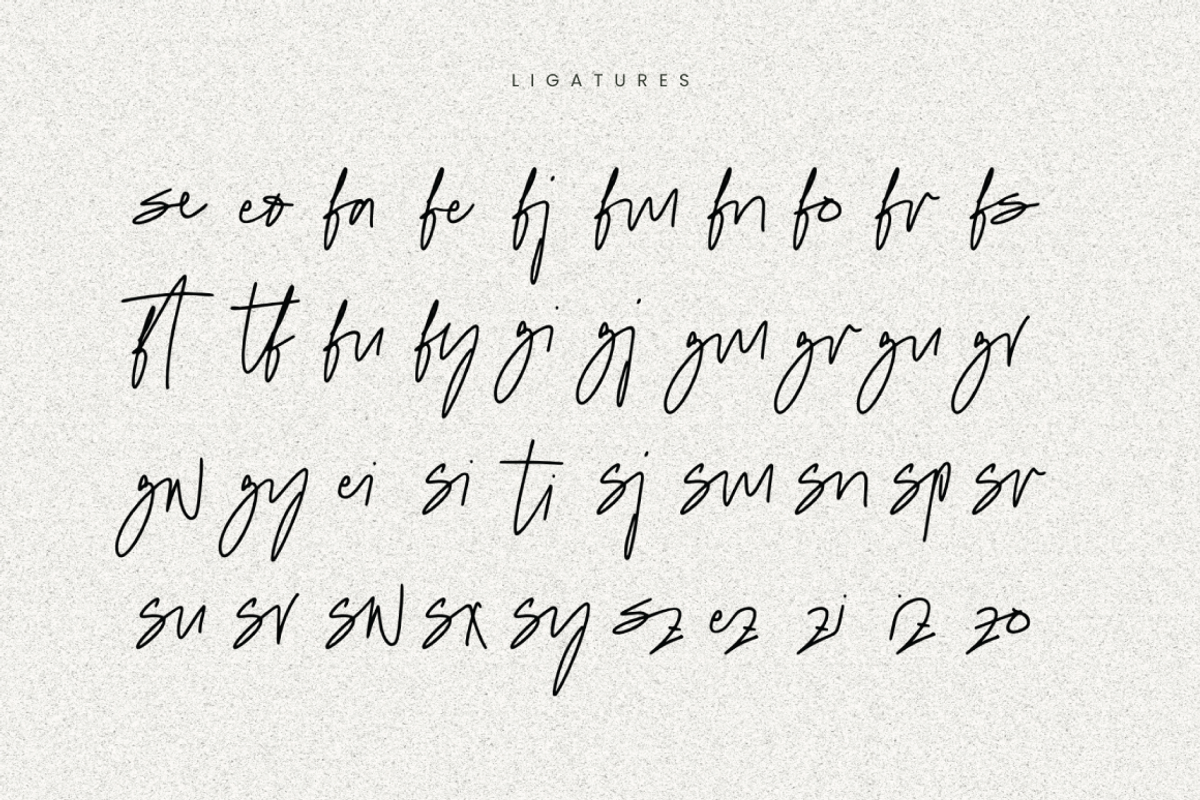 LIGATURES
se es fa fe fj fm fn fo fr fs
ft tf fu fy gi gj gm gr gu gv
gw gy ei si ti sj sm sn sp sr
su sv sw sx sy sz ez zi iz zo